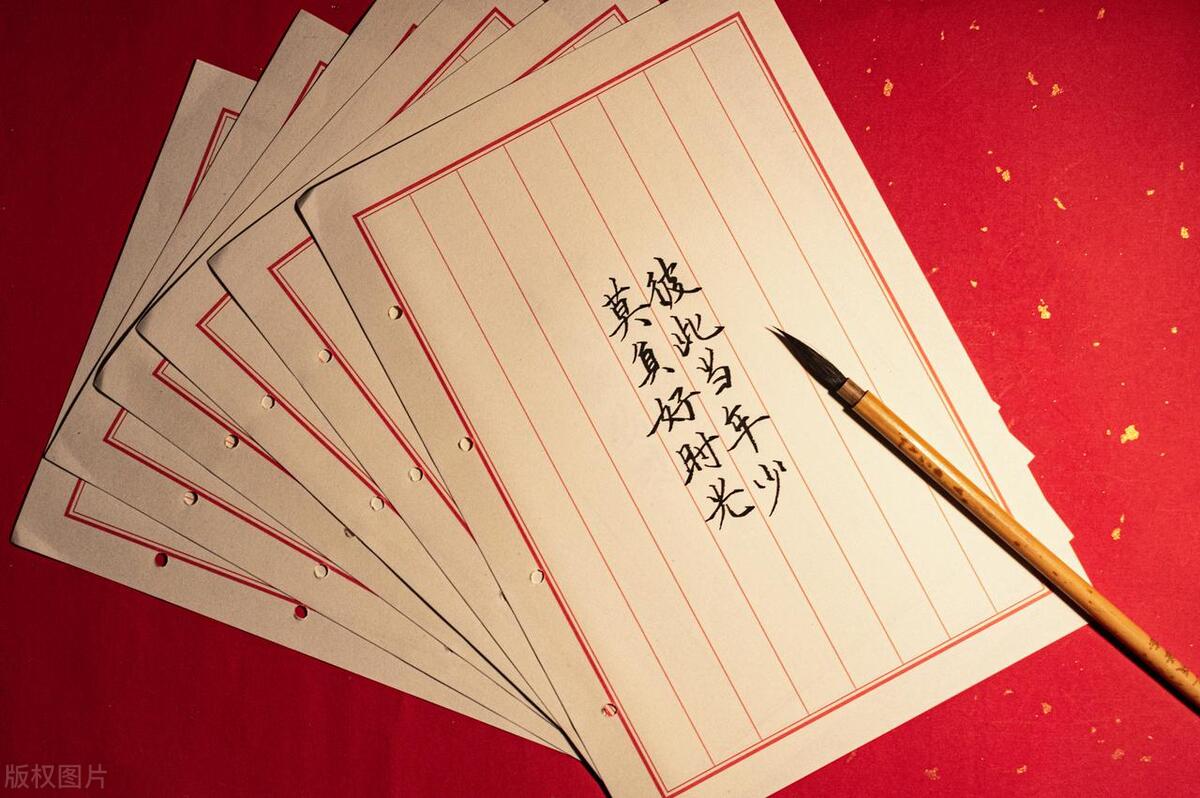 彼此当年少
莫负好时光
版权图片